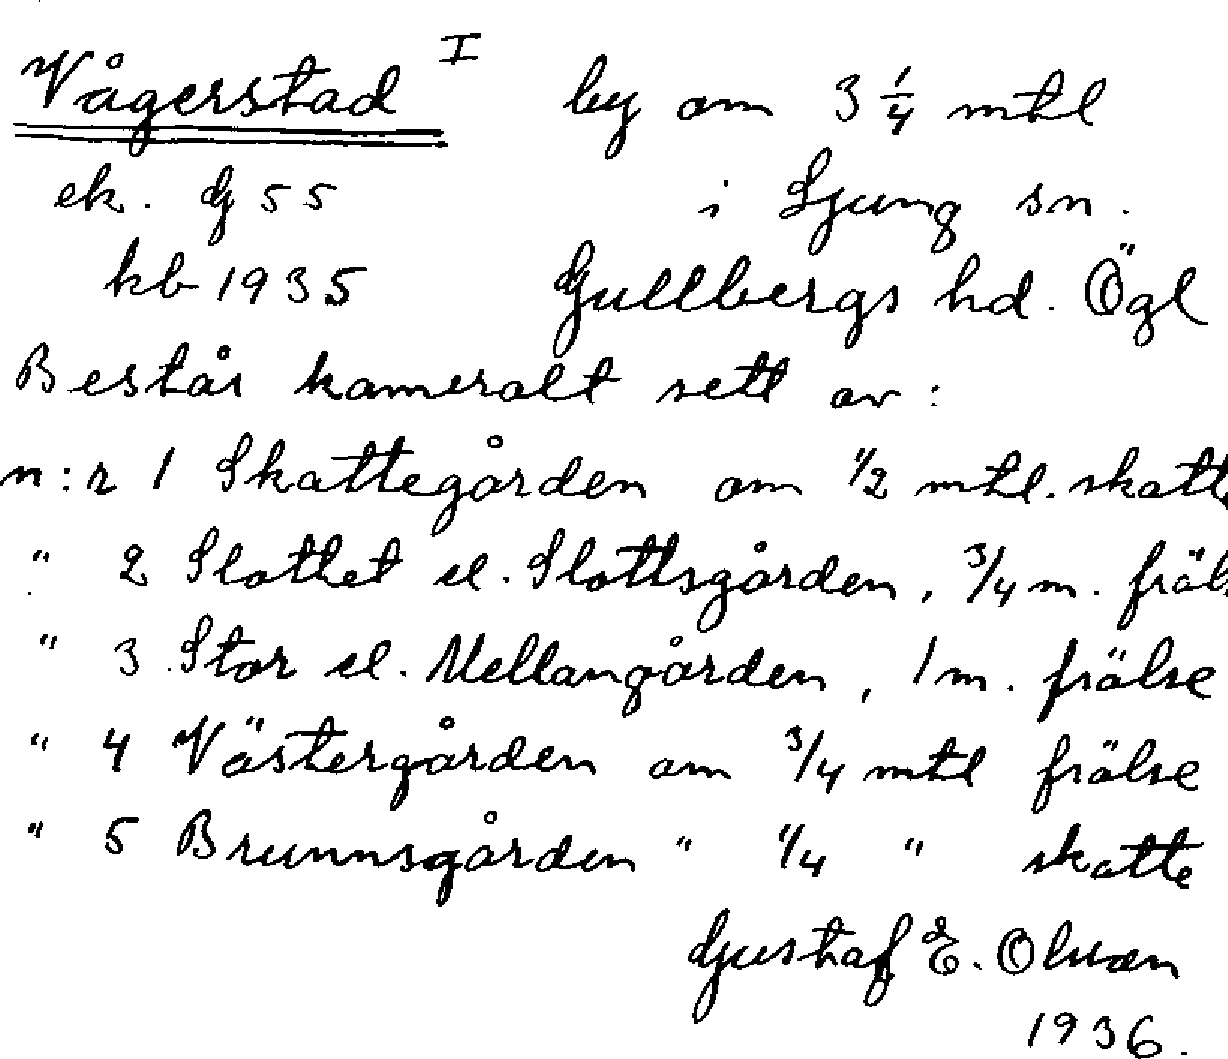 Vågerstad I by om 3 1/4 mtl
ek. G 55 i Ljung sn.
kb 1935 Gullbergs hd. Ögl
Består kameralt sett av:
n:r 1 Skattegården om 1/2 mtl. skatte
" 2 Slottet el. Slottsgården, 3/4 m. fräls
" 3 Stor el. Mellangården, 1 m. frälse
" 4 Västergården om 3/4 mtl frälse
" 5 Brunnsgården " 1/4 " skatte
Gustaf E. Olsson
1936.